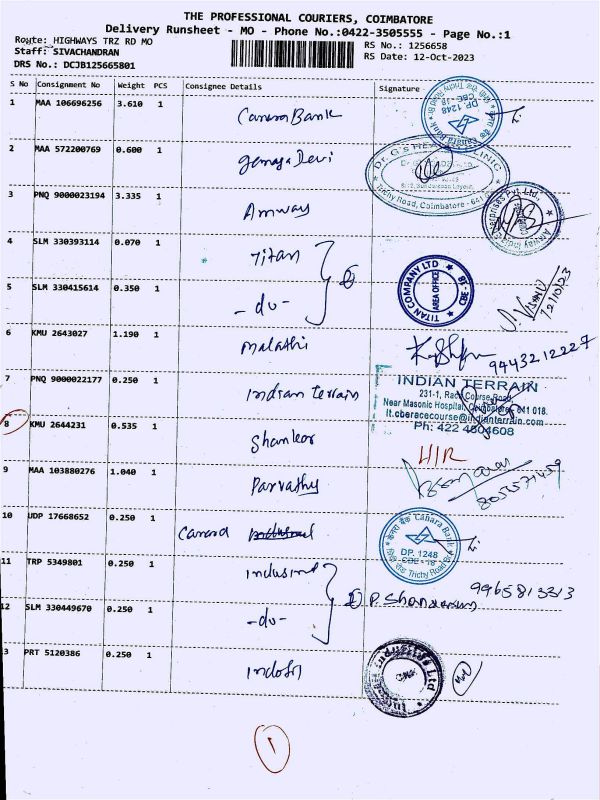 THE PROFESSIONAL COURIERS, COIMBATORE
Delivery Runsheet - MO - Phone No.:0422-3505555 - Page No.:1
Route: HIGHWAYS TRZ RD MO
Staff: SIVACHANDRAN
DRS No.: DCJB125665801
RS No.: 1256658
RS Date: 12-Oct-2023
S No Consignment No Weight PCS Consignee Details Signature
1 MAA 106696256 3.610 1 Canara Bank
DP. 1248
CBE-18
2 MAA 572200769 0.600 1
Trichy Road, Coimbatore - 641
3 PNQ 9000023194 3.335 1 Amway
4 SLM 330393114 0.070 1 Titan
TITAN COMPANY LTD
AREA OFFICE
CBE - 18
5 SLM 330415614 0.350 1 - do -
12/10/23
6 KMU 2643027 1.190 1 Malathi
9443212227
7 PNQ 9000022177 0.250 1 Indian terrain
INDIAN TERRAIN
231-1, Race Course Road,
Near Masonic Hospital, Coimbatore - 641 018.
it.cberacecourse@indianterrain.com
Ph: 422 4504608
8 KMU 2644231 0.535 1 Shankar
H/R
9 MAA 103880276 1.040 1 Parvathy
10 UDP 17668652 0.250 1 Canara
Canara Bank
DP. 1248
CBE - 18
Trichy Road Br
11 TRP 5349801 0.250 1 Indusind
9965813313
12 SLM 330449670 0.250 1 - do -
13 PRT 5120386 0.250 1 Indofil
1